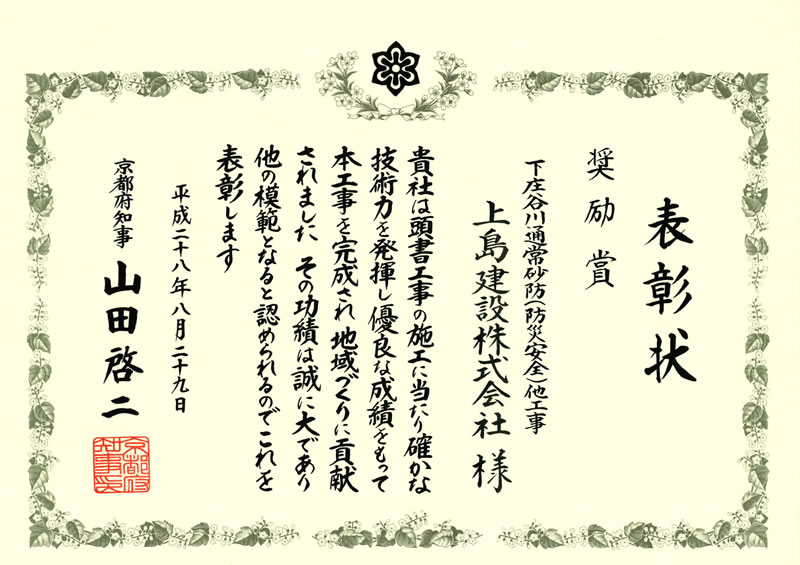 表彰状
奨励賞
下庄谷川通常砂防(防災安全)他工事
上島建設株式会社様
貴社は頭書工事の施工に当たり確かな
技術力を発揮し優良な成績をもって
本工事を完成され地域づくりに貢献
されました その功績は誠に大であり
他の模範となると認められるのでこれを
表彰します
平成二十八年八月二十九日
京都府知事 山田啓二
京都府
知事印